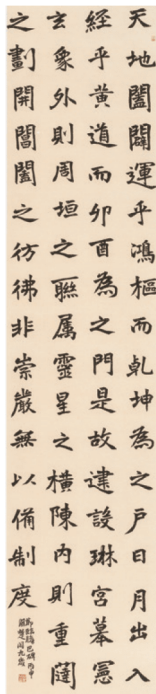 天地闔闢運乎鴻樞而乹坤為之戶日月出入
經乎黃道而卯酉為之門是故建設琳宮摹憲
玄象外則周垣之聮属靈星之橫陳內則重闥
之劃開閶闔之彷彿非崇嚴無以備制度